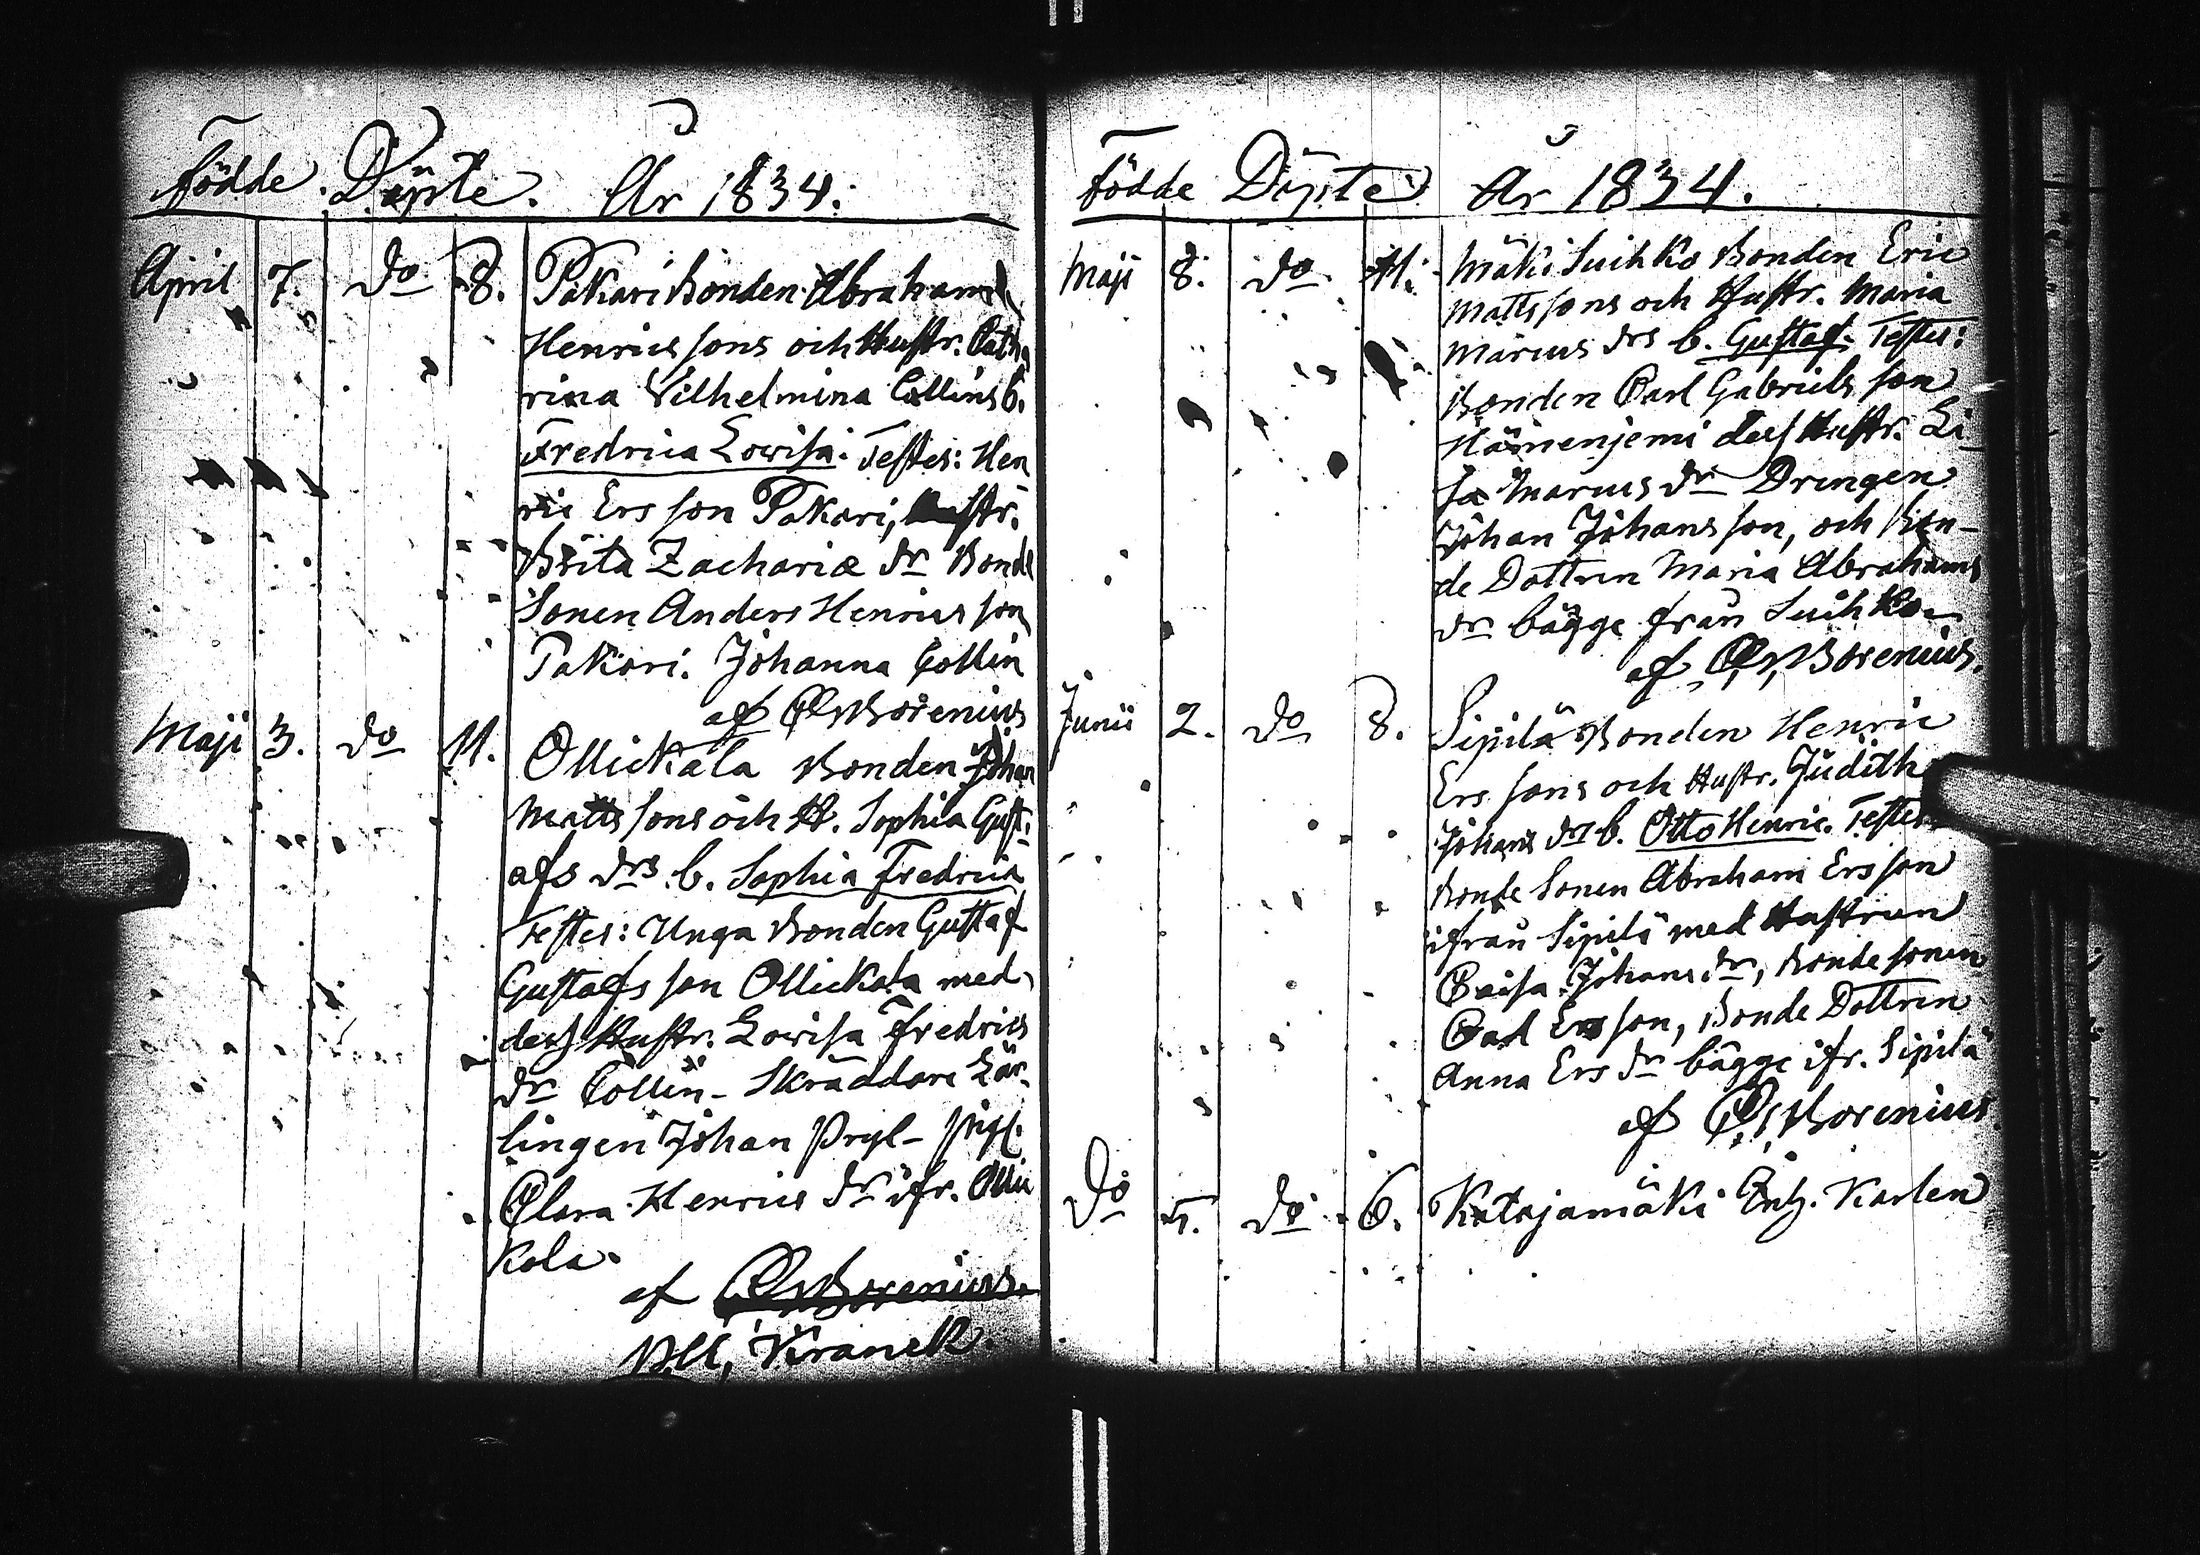 Födde. Döpte. År 1834.
April 7. do 8. Pakari Bonden Abraham
Henrics sons och Hustr. Catha
rina Vilhelmina Collins b.
Fredrica Lovisa. Testes: Hen
ric Ers son Pakari, Hustr.
Brita Zachariæ dr Bonde
Sonen Anders Henrics son
Pakari. Johanna Collin
af C. Borenius
Maji 3. do 11. Ollickala Bonden Johan
Matts sons och H. Sophia Gust.
afs drs b. Sophia Fredrica
Testes: Unga Bonden Gustaf
Gustafs son Ollickala med
dess Hustr. Lovisa Fredrics
dr Collin - Skräddare Lär-
lingen Johan Pryl - Pig.
Clara Henrics dr ifr. Olli
kala.
af C. Borenius.
Kranck.
Födde Döpte År 1834.
Maji 8. do 11. Mäki Suihko Bonden Eric
Mattssons och Hustr. Maria
Marcus drs b. Gustaf. Testes:
Bonden Carl Gabriels son
Hämenjemi dess Hustr. Li-
sa Marcus dr Drengen
Johan Johans son, och Bon-
de Dottren Maria Abrahams
dr bägge från Suihko.
af C. Borenius.
Junii 2. do 8. Sipilä Bonden Henric
Ers sons och Hustr. Judith
Johans dr b. Otto Henric. Testes
Bonde Sonen Abraham Ers son
ifrån Sipilä med Hustrun
Caisa Johans dr, Bonde sonen
Carl Ers son, Bonde Dottren
Anna Ers dr bägge ifr. Sipilä
af C. Borenius.
Do 5. do 6. Katajamäki Enk. Karlen